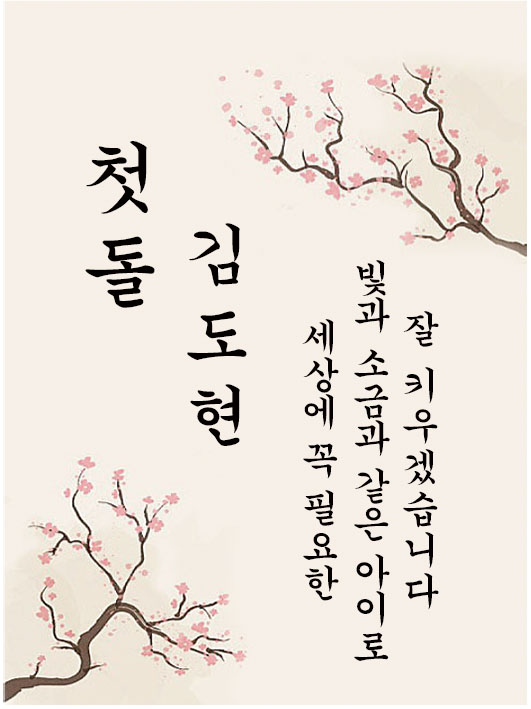 첫돌
김도현
세상에 꼭 필요한
빛과 소금과 같은 아이로
잘 키우겠습니다